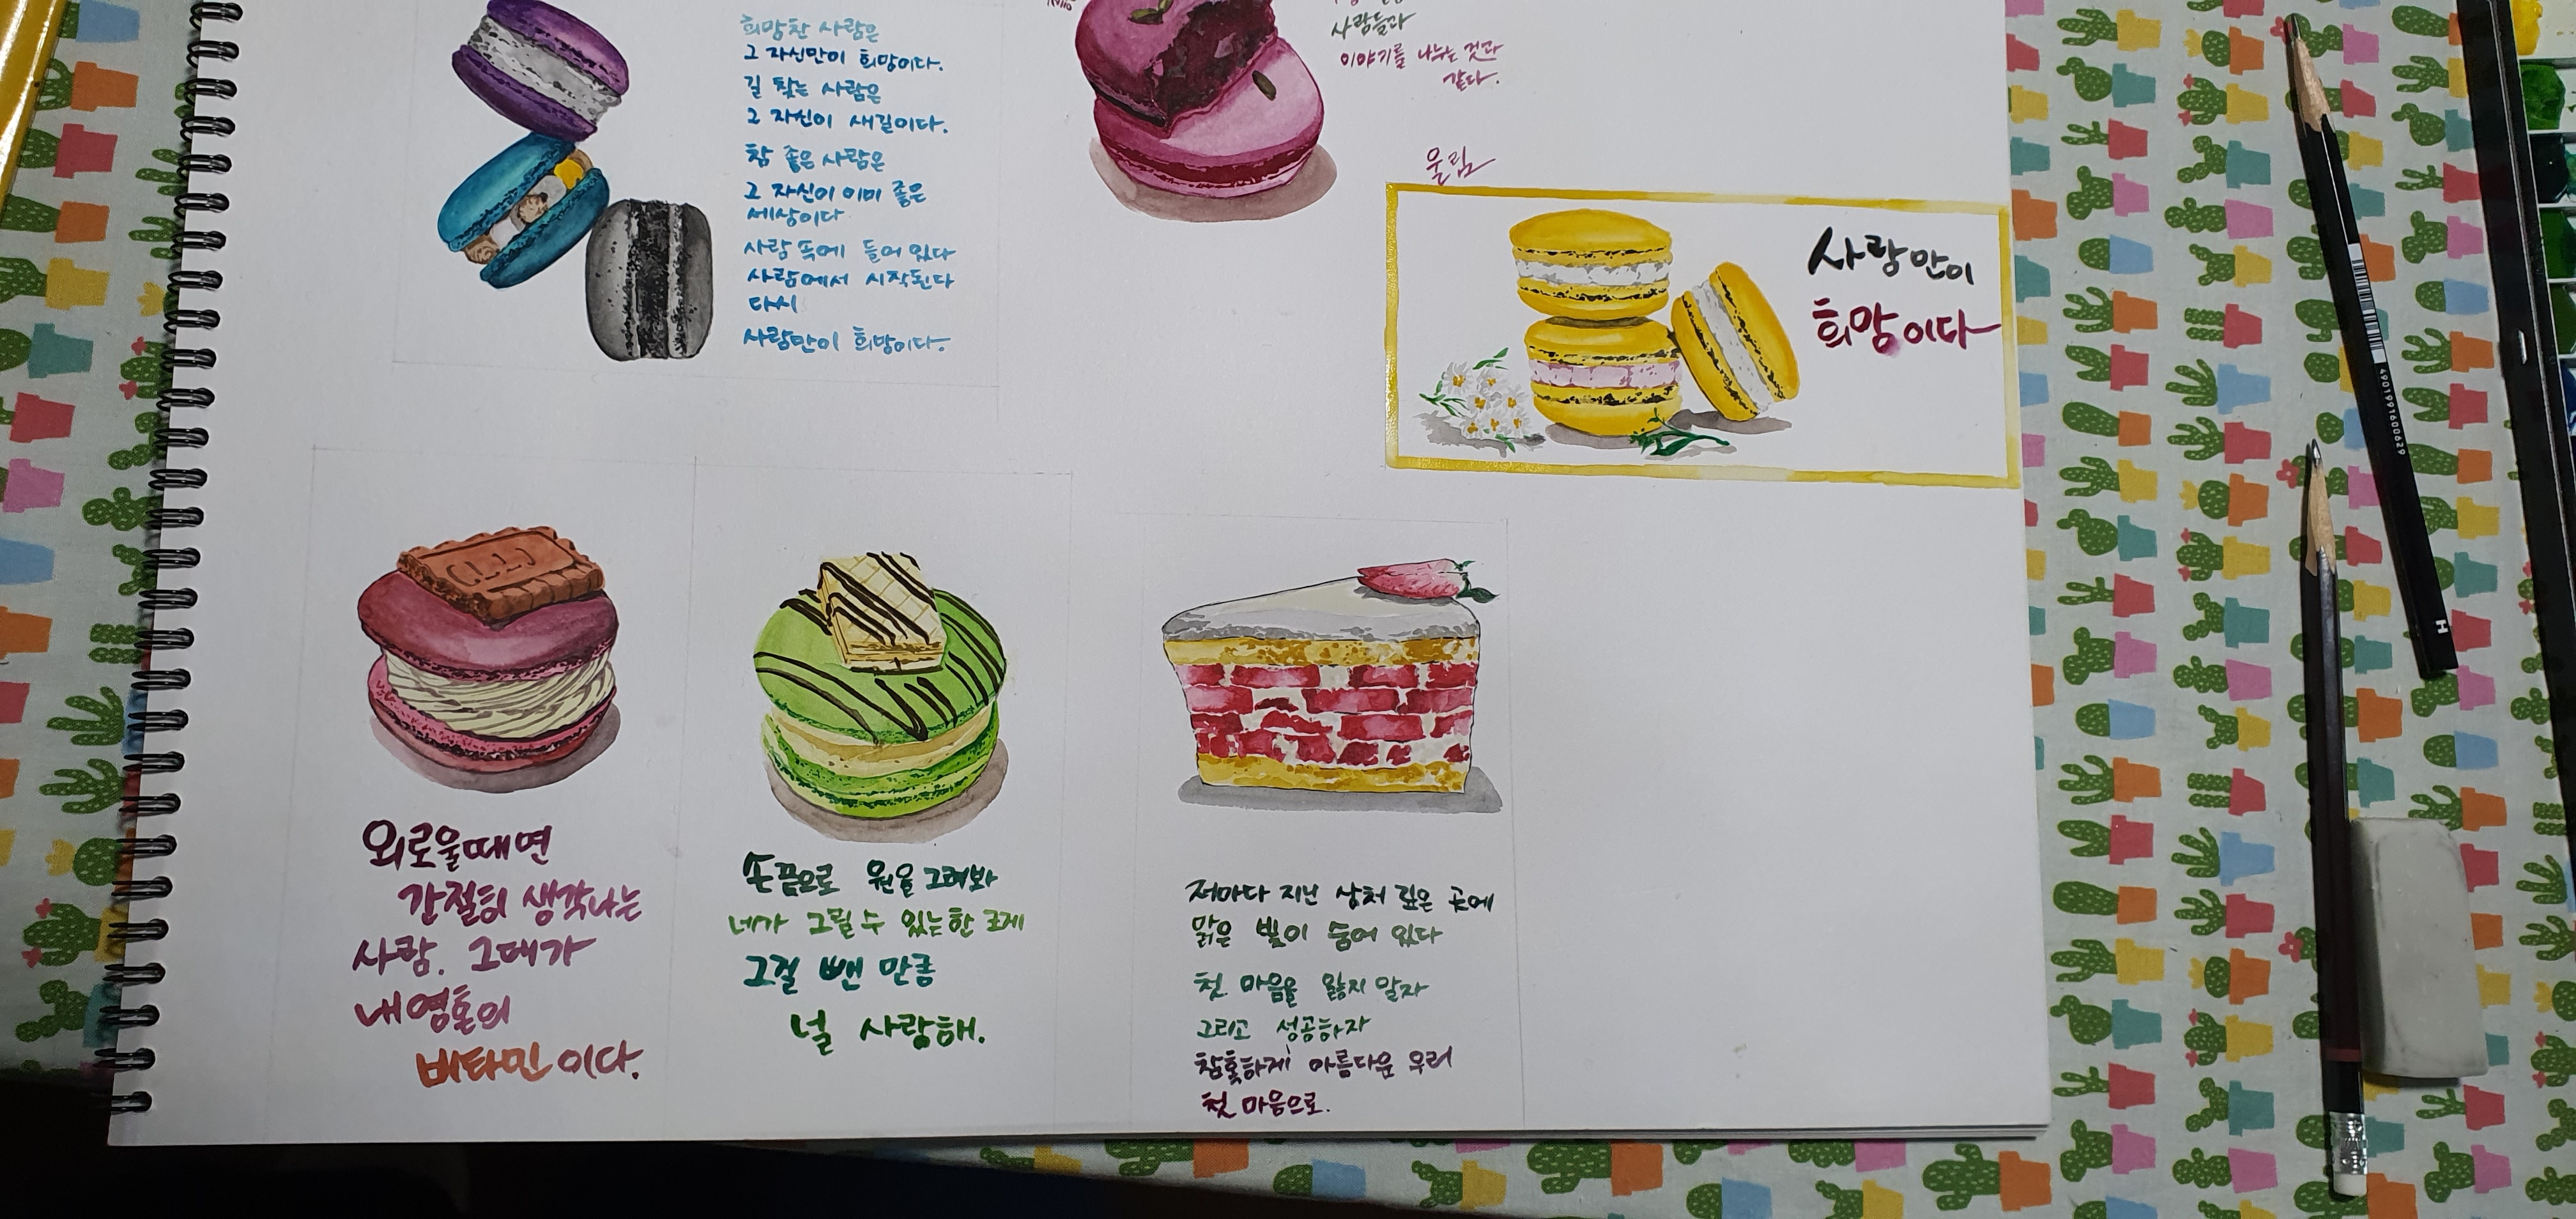 희망찬 사람은
그 자신만이 희망이다.
길 찾는 사람은
그 자신이 새길이다.
참 좋은 사람은
그 자신이 이미 좋은
세상이다
사람 속에 들어 있다
사람에서 시작된다
다시
사람만이 희망이다.
사람들과
이야기를 나누는 것과
같다.
울림
사람만이
희망이다
외로울때면
간절히 생각나는
사람. 그대가
내영혼의
비타민이다.
손끝으로 원을 그려봐
네가 그릴 수 있는한 크게
그걸 뺀 만큼
널 사랑해.
저마다 지닌 상처 깊은 곳에
맑은 빛이 숨어 있다
첫 마음을 잃지 말자
그리고 성공하자
참혹하게 아름다운 우리
첫 마음으로.
4901991600629
H